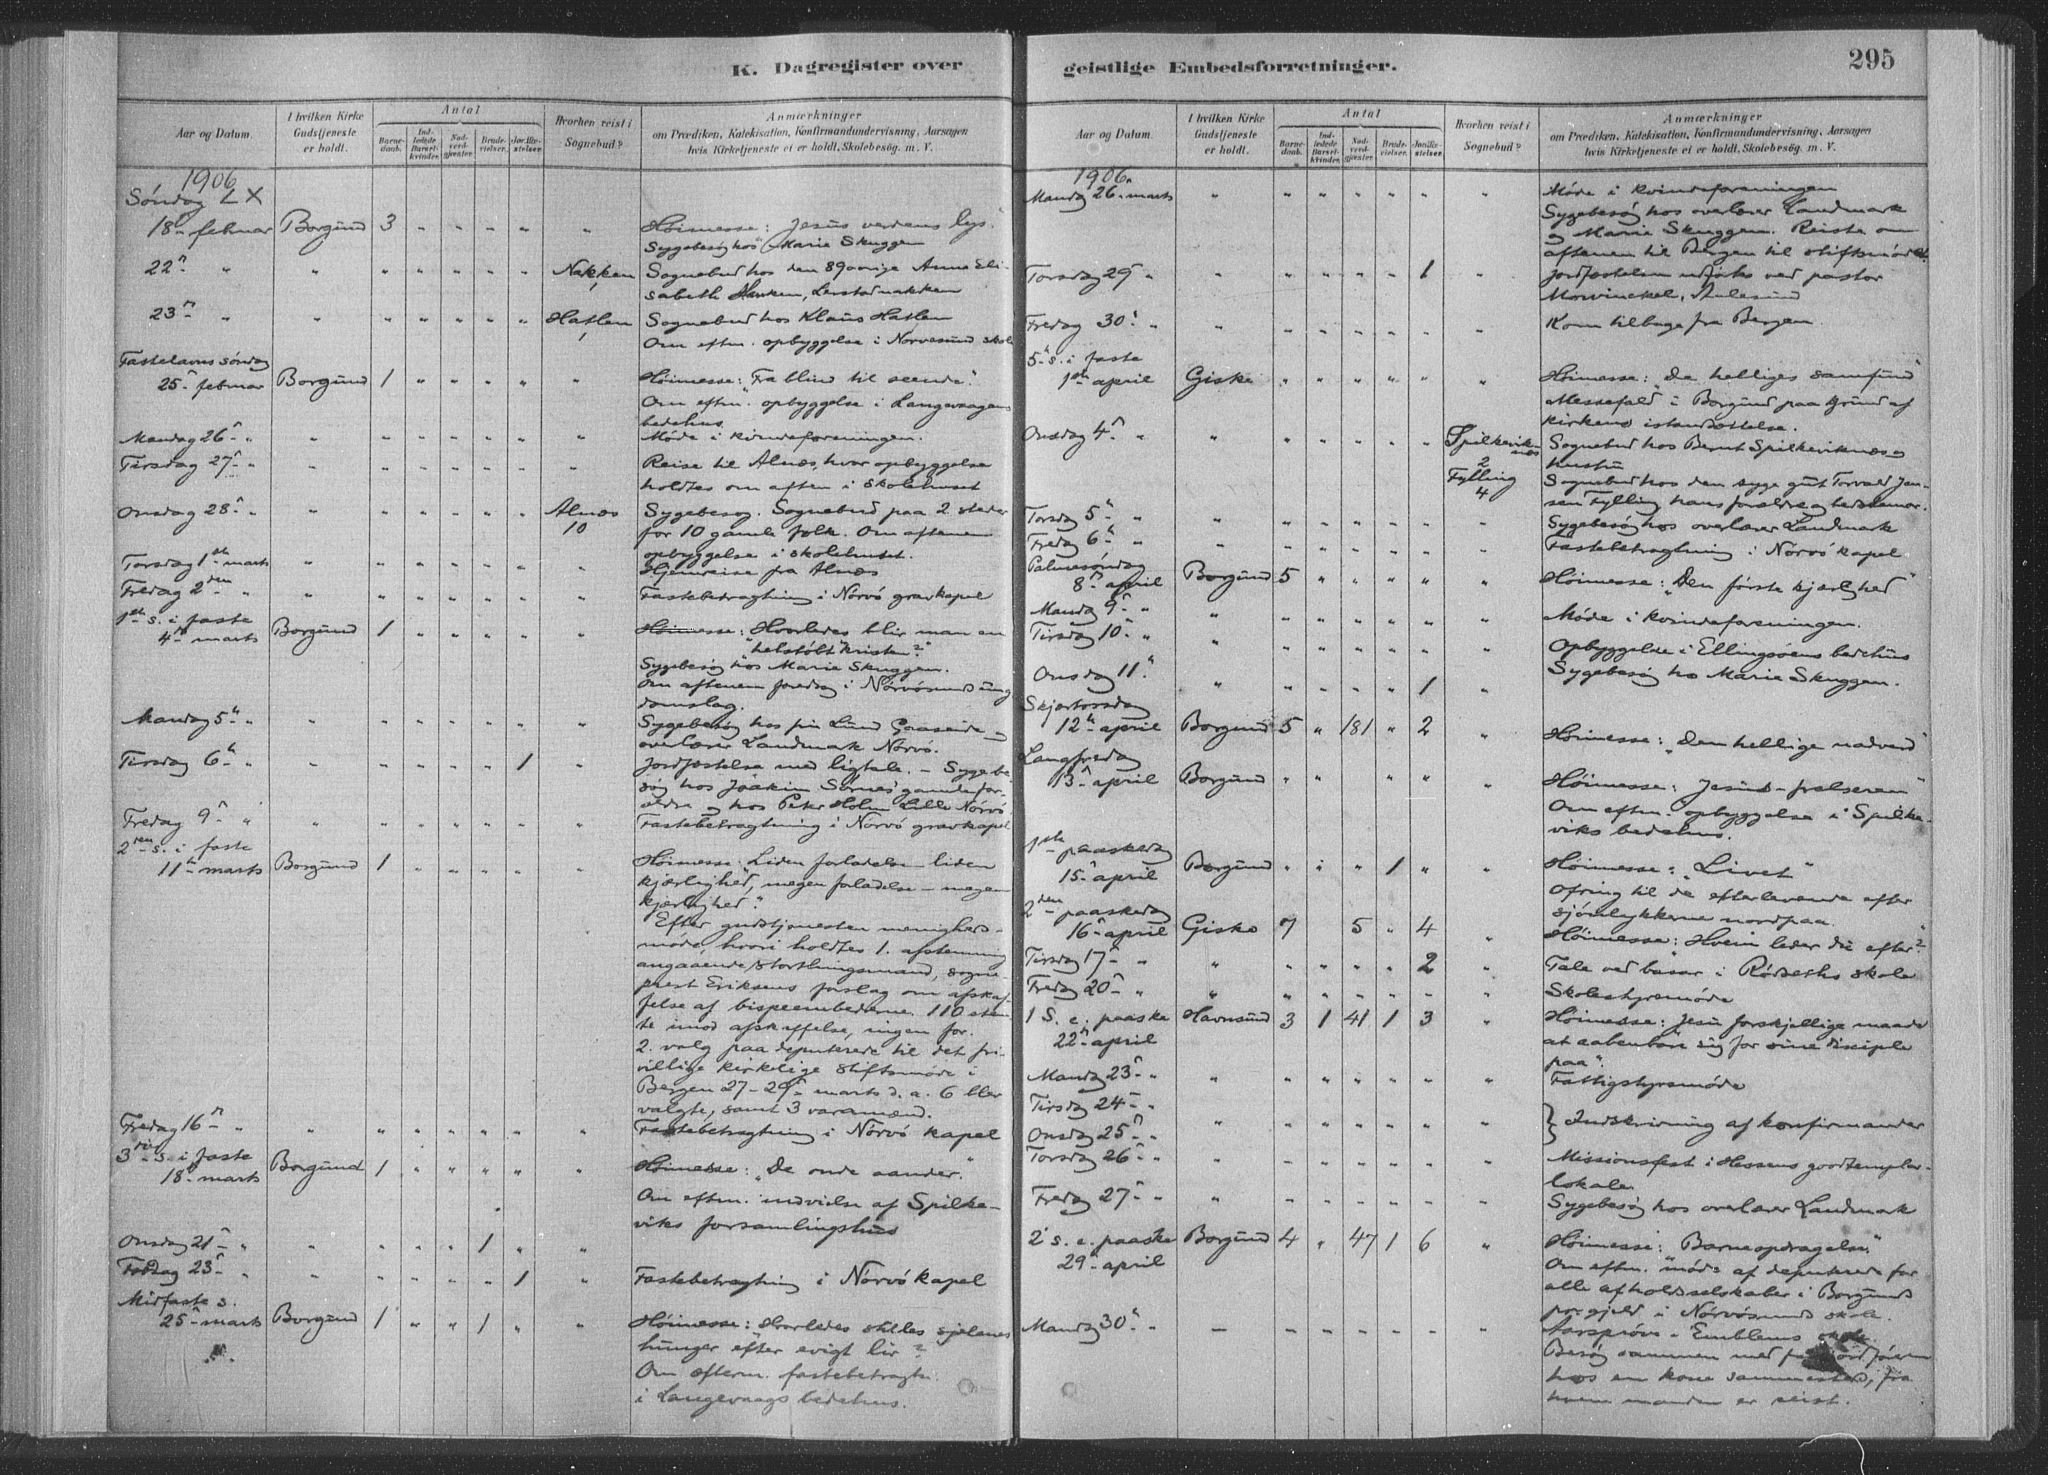 K. Dagregister over
Aar og Datum.
I hvilken Kirke Gudstjeneste er holdt.
Antal
Barnedaab.
Indledede Barselkvinder.
Nadverdgjester.
Brudevielser.
Jordfæstelser.
Hvorhen reist i Sognebud?
Anmærkninger
om Prædiken, Katekisation, Konfirmandundervisning, Aarsagen
hvis Kirketjeneste ei er holdt, Skolebesøg. m. V.
1906
Søndag LX
18 februar Borgund 3 " " " " " Høimesse: Jesus verdens lys.
Sygebesøg hos Marie Skuggen
22 " " " " " " " Nakken Sognebud hos den 89 aarige Anne Eli-
sabeth Nakken, Lerstadnakken
23 " " " " " " " Hatlen Sognebud hos Klaus Hatlen
Om eftm. opbyggelse i Nørvesund skole
Fastelavns søndag
25 februar Borgund 1 " " " " " Høimesse: "Fra blind til seende".
Om eftm. opbyggelse i Langevaagens
bedehus
Mandag 26 " " " " " " " " Møde i kvindeforeningen.
Tirsdag 27 " " " " " " " " Reise til Alnæs, hvor opbyggelse
holdtes om aften i skolehuset
Onsdag 28 " " " " " " " Alnæs 10 Sygebesøg. Sognebud paa 2 steder
for 10 gamle folk. Om aftenen
opbyggelse i skolehuset.
Torsdag 1ste marts " " " " " " " Hjemreise fra Alnæs
Fredag 2den " " " " " " " " Fastebetragtning i Nørvø gravkapel
1ste s. i faste
4de marts Borgund 1 " " " " " Høimesse: Hvorledes blir man en
"helstøbt" kristen?
Sygebesøg hos Marie Skuggen.
Om aftenen foredrag i Nørvøsunds ung
domslag.
Mandag 5 " " " " " " " " Sygebesøg hos frk Lund Gaaseide og
overlærer Landmark Nørvø.
Tirsdag 6 " " " " " " 1 " Jordfæstelse med ligtale. – Sygebe-
søg hos Joakim Sørnes gamle for-
ældre og hos Peter Holm Lille Nørvø
Fredag 9 " " " " " " " " Fastebetragtning i Nørvø gravkapel
2den s. i faste
11 marts Borgund 1 " " " " " Høimesse: "Liden forladelse liden
kjærlighed, megen forladelse – megen
kjærlighed".
Efter gudstjenesten menigheds-
møde, hvori holdtes 1. afstemning
angaaende stortingsmand, sogne-
prest Eriksens forslag om afskaf-
felse af bispeembederne. 110 stem-
te imod afskaffelse, ingen for.
2. valg paa deputerede til det fri-
villige kirkelige stiftsmøde i
Bergen 27–29 marts d. a. 6 blev
valgte, samt 3 varamænd.
Fredag 16 " " " " " " " " Fastebetragtning i Nørvø kapel
3die s. i faste
18 marts Borgund 1 " " " " " Høimesse: "De onde aander".
Om eftm. indvielse af Spilke-
viks forsamlingshus
Onsdag 21 " " " " " 1 " "
Fredag 23 " " " " " " 1 " Fastebetragtning i Nørvø kapel
Midfaste s.
25 marts Borgund 1 " " 1 " " Høimesse: Hvorledes stilles sjælens
hunger efter evigt liv?
Om efterm. fastebetragtn.
i Langevaags bedehus.
geistlige Embedsforretninger.
295
Aar og Datum.
I hvilken Kirke Gudstjeneste er holdt.
Antal
Barnedaab.
Indledede Barselkvinder.
Nadverdgjester.
Brudevielser.
Jordfæstelser.
Hvorhen reist i Sognebud?
Anmærkninger
om Prædiken, Katekisation, Konfirmandundervisning, Aarsagen
hvis Kirketjeneste ei er holdt, Skolebesøg. m. V.
1906.
Mandag 26 marts " " " " " " " Møde i kvindeforeningen
Sygebesøg hos overlærer Landmark
og Marie Skuggen. Reiste om
aftenen til Bergen til stiftsmødet.
Torsdag 29 " " " " " " 1 " Jordfæstelsen udførtes ved pastor
Mowinckel, Aalesund
Fredag 30 " " " " " " " " Kom tilbage fra Bergen.
5 s. i faste
1ste april Giske " " " " " " Høimesse: "De helliges samfund"
Messefald i Borgund paa grund af
kirkens istandsættelse.
Onsdag 4 " " " " " " " Spilkeviknes 2 Sognebud hos Bernt Spilkeviknes og
hustru
Fylling 4 Sognebud hos den syge gut Torvald Jen-
sen Fylling hans forældre og bedstemor.
Torsdag 5 " " " " " " " " Sygebesøg hos overlærer Landmark
Fredag 6 " " " " " " " " Fastebetragtning i Nørvø kapel
Palmesøndag
8 april Borgund 5 " " " " " Høimesse: "Den første kjærlighed"
Mandag 9 " " " " " " " " Møde i kvindeforeningen.
Tirsdag 10 " " " " " " " " Opbyggelse i Ellingsøens bedehus
Onsdag 11 " " " " " 1 " Sygebesøg hos Marie Skuggen.
Skjærtorsdag
12 april Borgund 5 " 181 " 2 " Høimesse: "Den hellige nadverd"
Langfredag
13 april Borgund " " " " " " Høimesse: Jesus – frelseren"
Om eftm. opbyggelse i Spilke-
viks bedehus.
1ste paaskedag
15 april Borgund " " " 1 " " Høimesse: "Livet"
Ofring til de efterlevende efter
sjøulykkerne nordpaa.
2den paaskedag
16 april Giske 7 5 " 4 " Høimesse: Hvem leder du efter?
Tirsdag 17 " " " " " " 2 " Tale ved basar i Rødseths skole
Fredag 20 " " " " " " " " Skolestyremøde
1 S. e. paaske Havnsund 3 1 41 1 3 " Høimesse: Jesu forskjellige maade
22 april at aabenbare sig for sine disciple
paa".
Mandag 23 " " " " " " " " Fattigstyremøde
Tirsdag 24 "
Onsdag 25 " " " " " " " " } Indskrivning af konfirmander
Torsdag 26 " " " " " " " " Missionsfest i Hessens goodtemplar-
lokale.
Fredag 27 " " " " " " " " Sygebesøg hos overlærer Landmark
2 s. e. paaske Borgund 4 " 47 1 6 " Høimesse: "Barneopdragelse".
29 april Om eftm. møde af deputerede for
alle afholdsselskaber i Borgunds
prgjeld i Nørvøsunds skole.
Mandag 30 " – " " " " " " Aarsprøve i Emblems skole.
Besøg sammen med
hos en kone sammesteds, fra
hvem manden er reist.